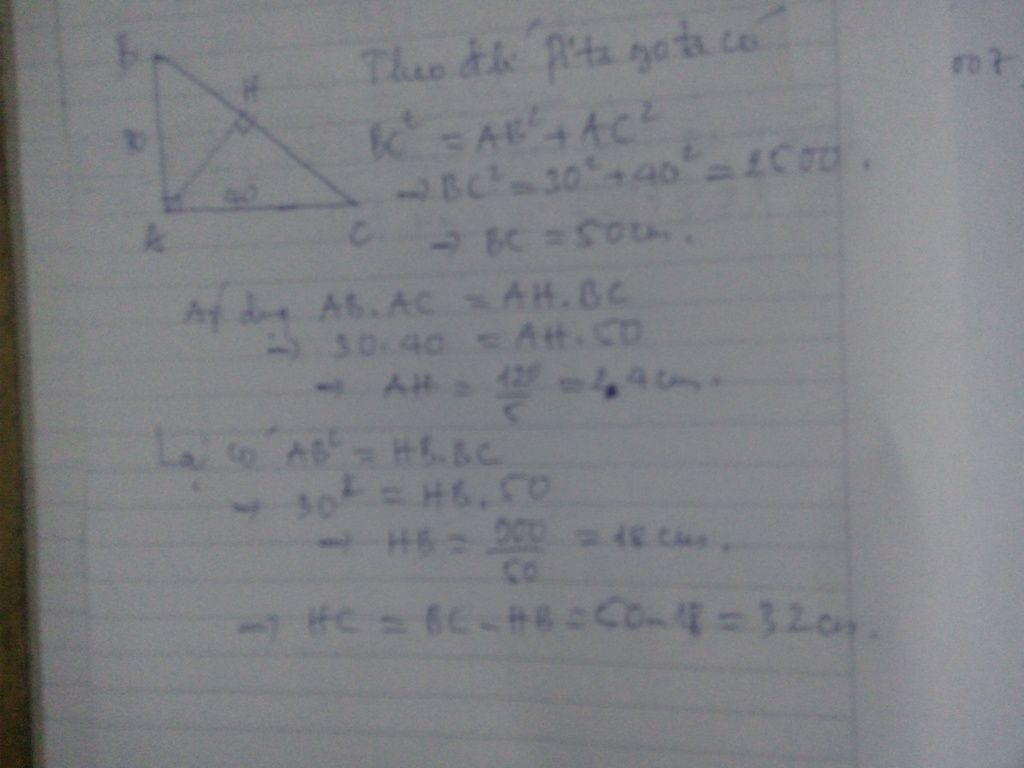 B
H
30
40
A
C
Theo đlí Pitagota có
007
BC² = AB² + AC²
→ BC² = 30² + 40² = 2500.
→ BC = 50cm.
AB.AC = AH.BC
→ 30.40 = AH.50
→ AH = 120/5 = 2.4cm.
Lại có AB² = HB.BC
→ 30² = HB.50
→ HB = 900/50 = 18 cm.
→ HC = BC - HB = 50 - 18 = 32cm.